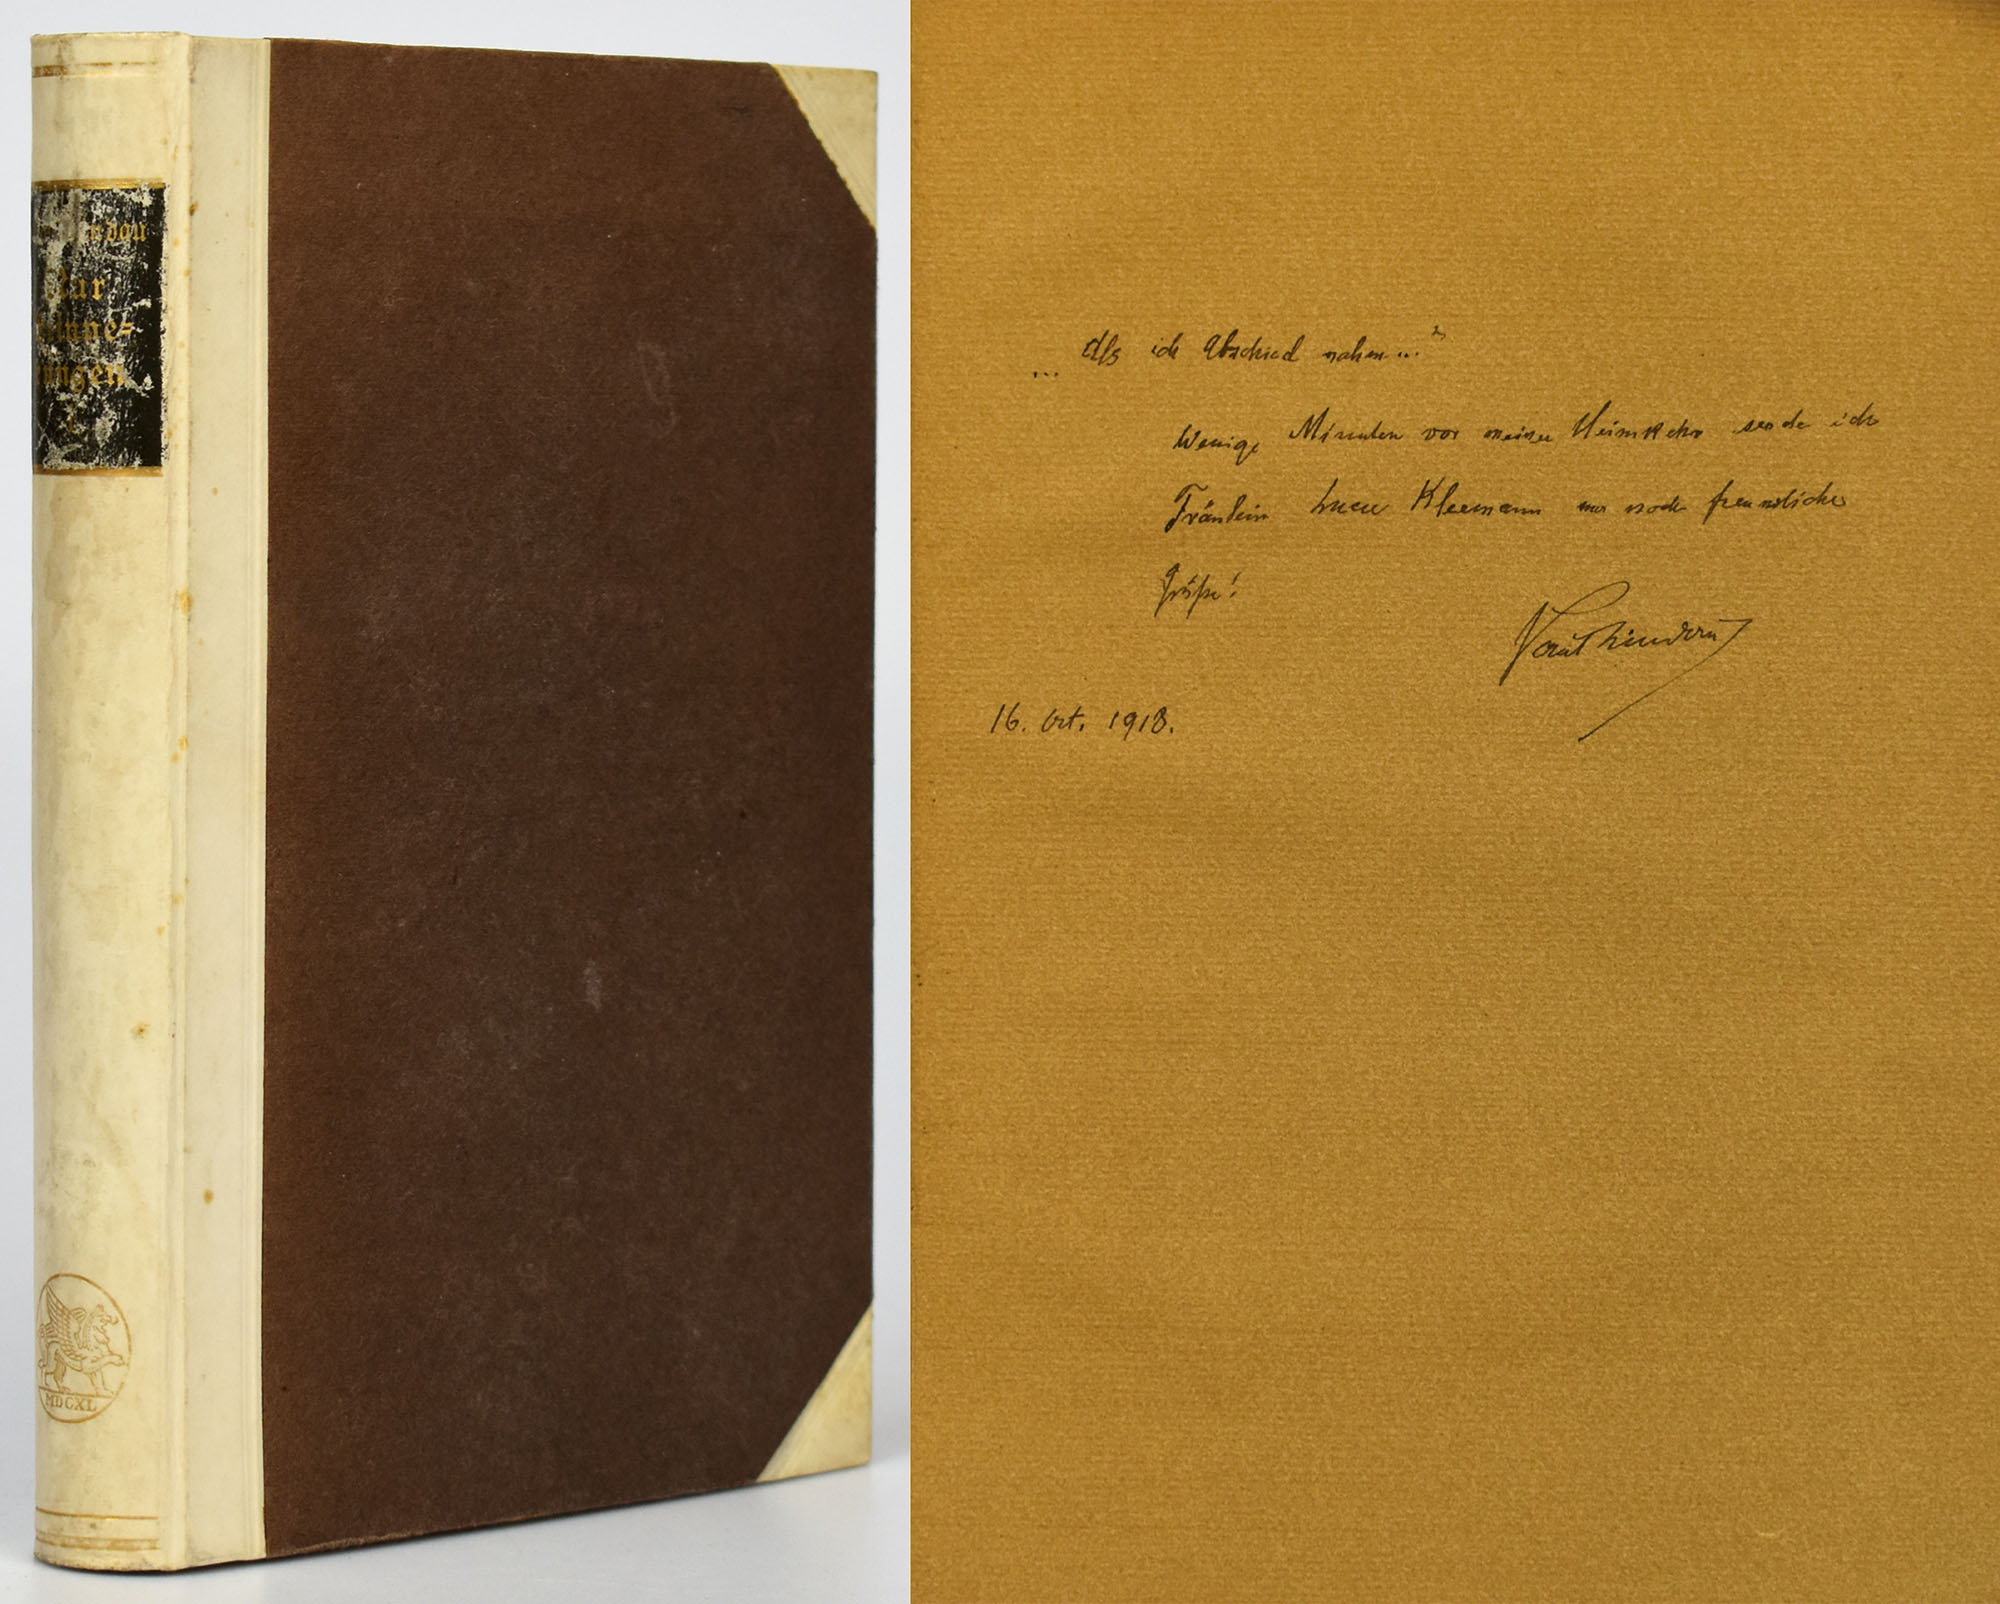 Kur
MDCXL
... Als ich Abschied nahm ..."
Wenige Minuten vor meiner Heimkehr sende ich
Fräulein Kleemann nur noch freundliche
Grüße!
16. Oct. 1918.